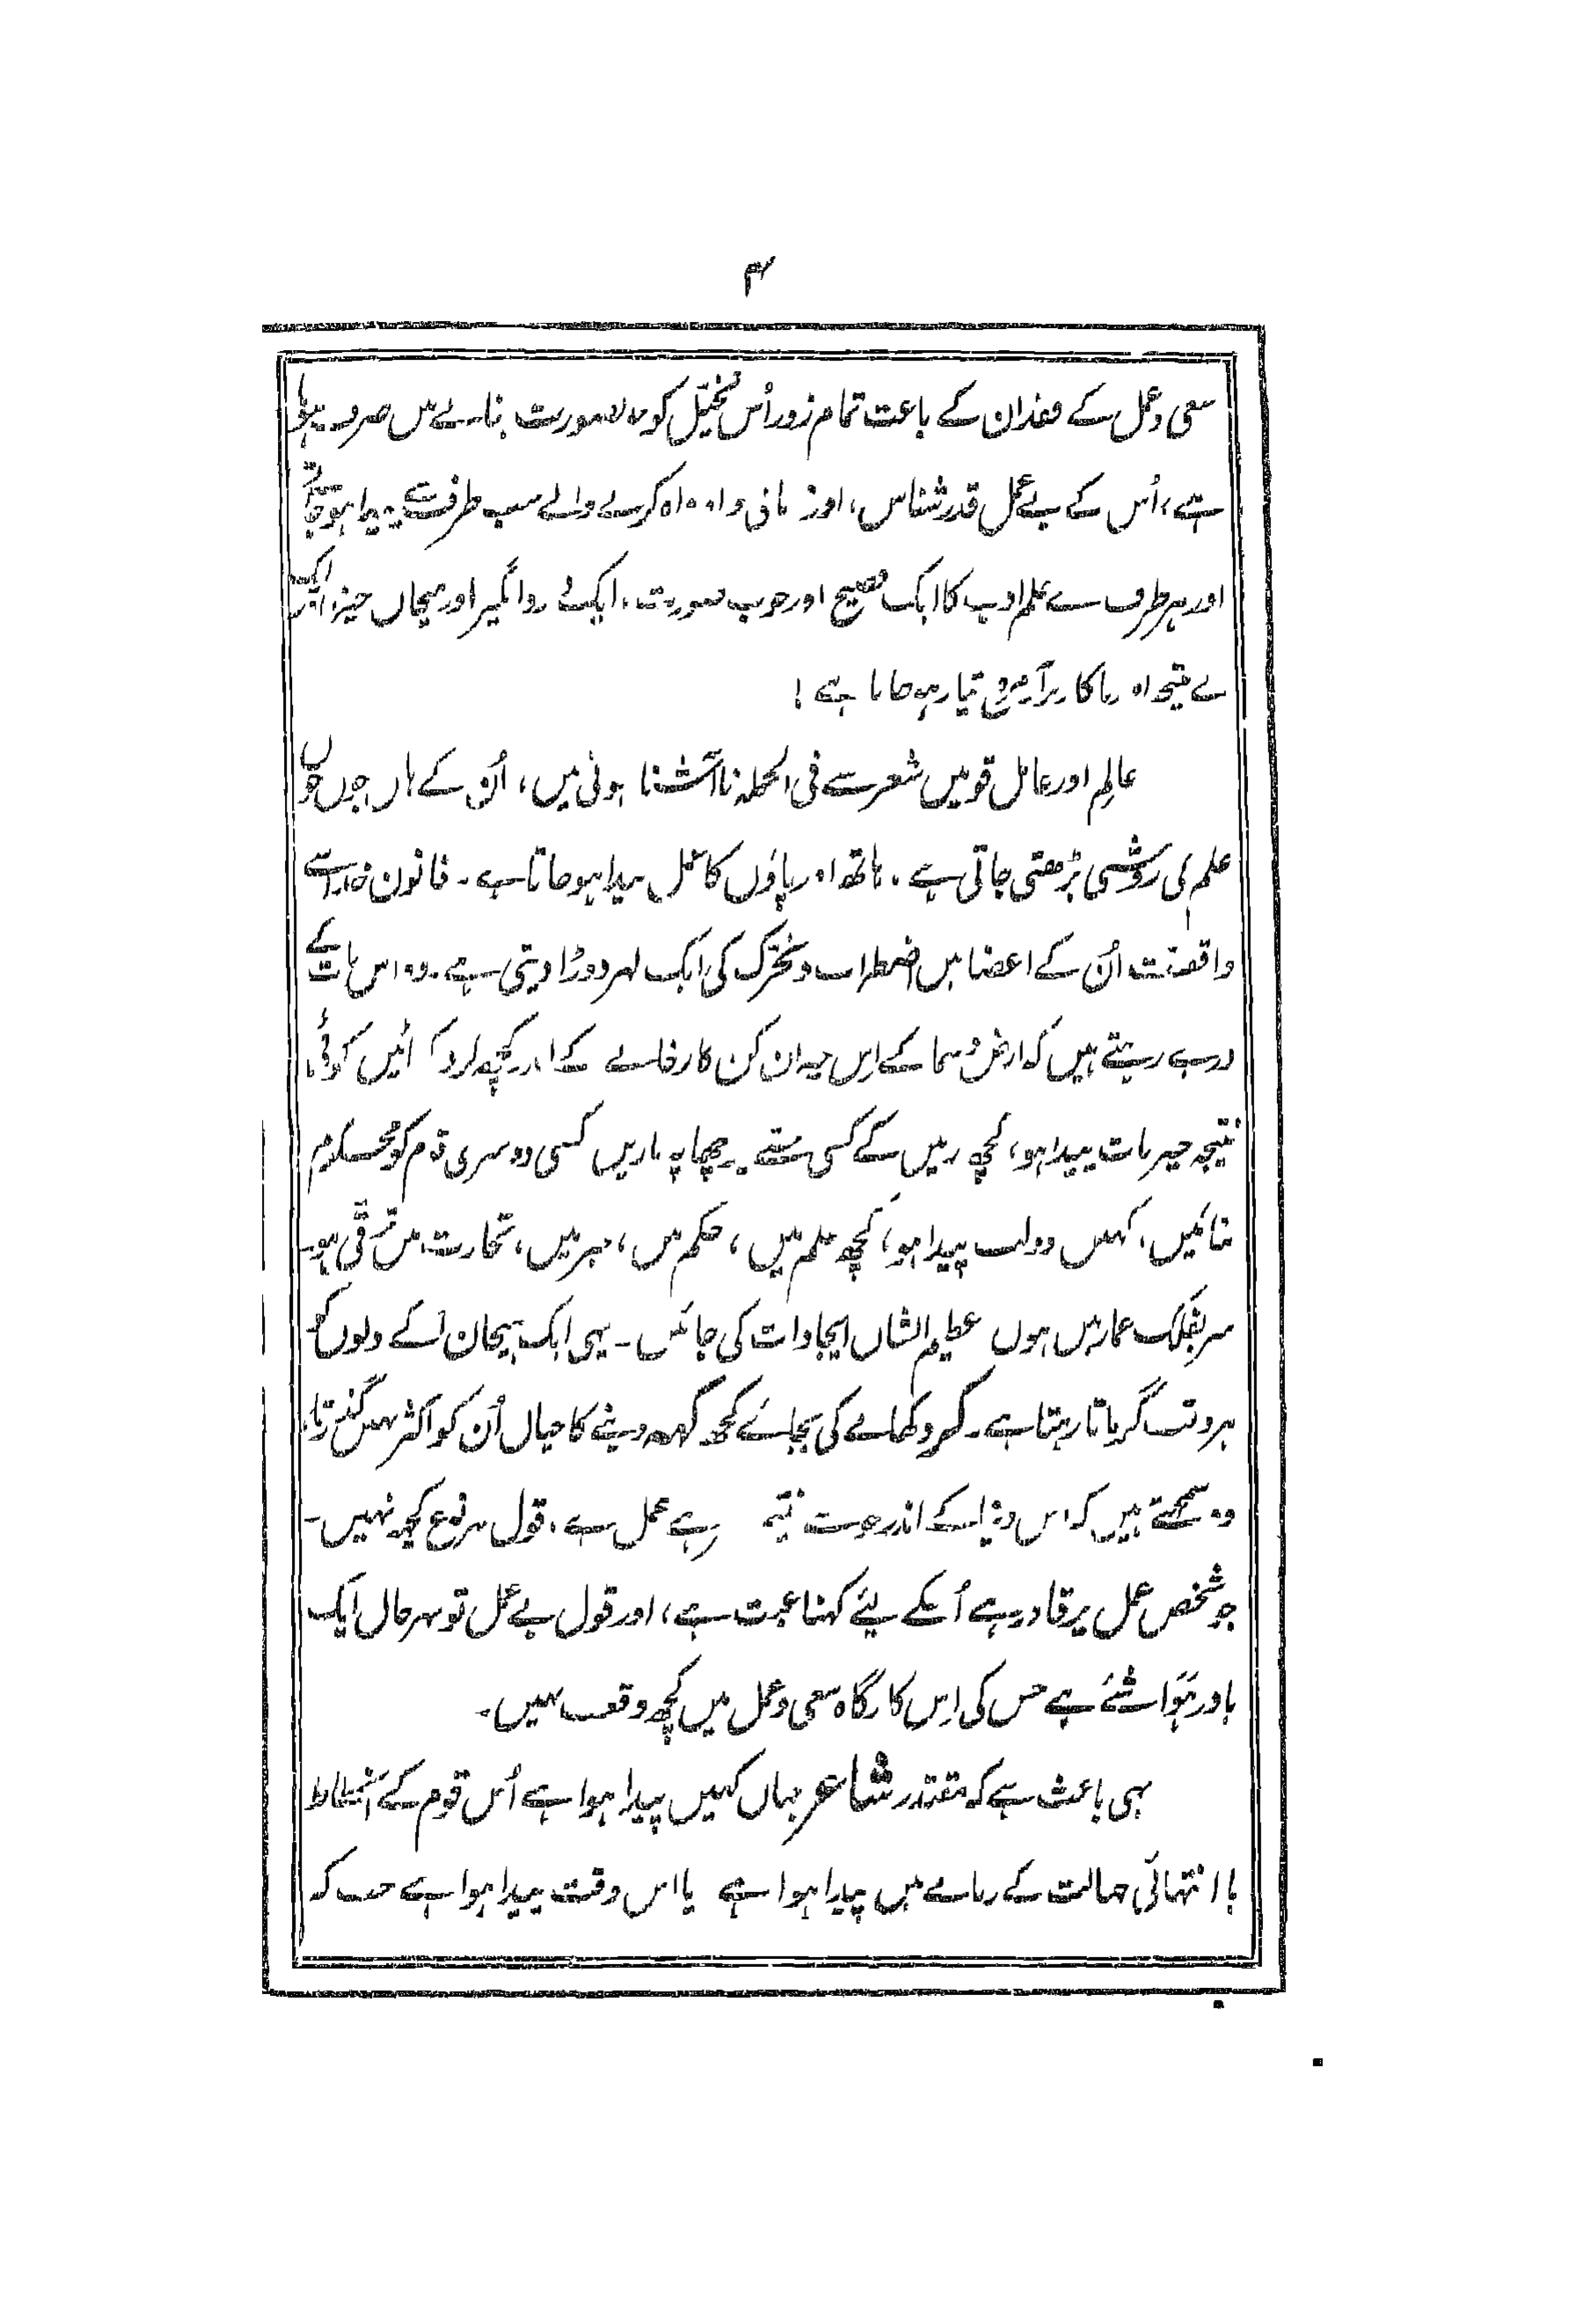 ۴
سعی و عمل کے فقدان کے باعث تمام زور اُس تخیّل کو خوبصورت بنانے میں صرف ہوتا
ہے، اُس کے بے عمل قدرشناس، اور زبانی واہ واہ کرنے والے سب طرف سے پیدا ہو جاتے
اور ہر طرف سے علم ادب کا ایک فصیح اور خوب صورت، ایک اور ہیجان خیز، مگر ایک
بے نتیجہ اور ناکار تیار ہو جاتا ہے!
عالِم اور عامل قومیں شعر سے فی الجملہ ناآشنا ہوتی ہیں، اُن کے ہاں جوں جوں
علم کی روشنی بڑھتی جاتی ہے، ہاتھ اور پاؤں کا عمل پیدا ہو جاتا ہے۔ قانون خدا سے
واقفیت اُن کے اعضا میں اضطراب و تحرّک کی ایک لہر دوڑا دیتی ہے۔ وہ اس بات کے
درپے رہتے ہیں کہ ارض و سما کے اِس حیران کن کارخانے کے اندر کچھ کر دکھائیں کوئی
نتیجہ خیز بات پیدا ہو، کچھ زمیں کے کسی حصّے پر چھاپہ ماریں کسی دوسری قوم کو محکوم
بنائیں، کہیں دولت پیدا ہو، کچھ علم میں، حکم میں، ہنر میں، تجارت میں ترقی ہو۔
سربفلک عمارتیں ہوں عظیم الشان ایجادات کی جائیں۔ یہی ایک ہیجان اُنکے دلوں کو
ہر وقت گرماتا رہتا ہے۔ کر دکھانے کی بجائے کچھ کہہ دینے کا خیال اُن کو اکثر نہیں گذرتا،
وہ سمجھتے ہیں کہ اس دنیا کے اندر جو شے نتیجہ خیز ہے عمل ہے، قول ہر نوع کچھ نہیں۔
جو شخص عمل پر قادر ہے اُسکے لئے کہنا عبث ہے، اور قول بے عمل تو بہر حال ایک
بادر ہوا شئے ہے جس کی اِس کارگاہ سعی و عمل میں کچھ وقعت نہیں۔
یہی باعث ہے کہ مقتدر شاعر جہاں کہیں پیدا ہوا ہے اُس قوم کے انحطاط
یا انتہائی جہالت کے زمانے میں پیدا ہوا ہے یا اس وقت پیدا ہوا ہے جب کہ